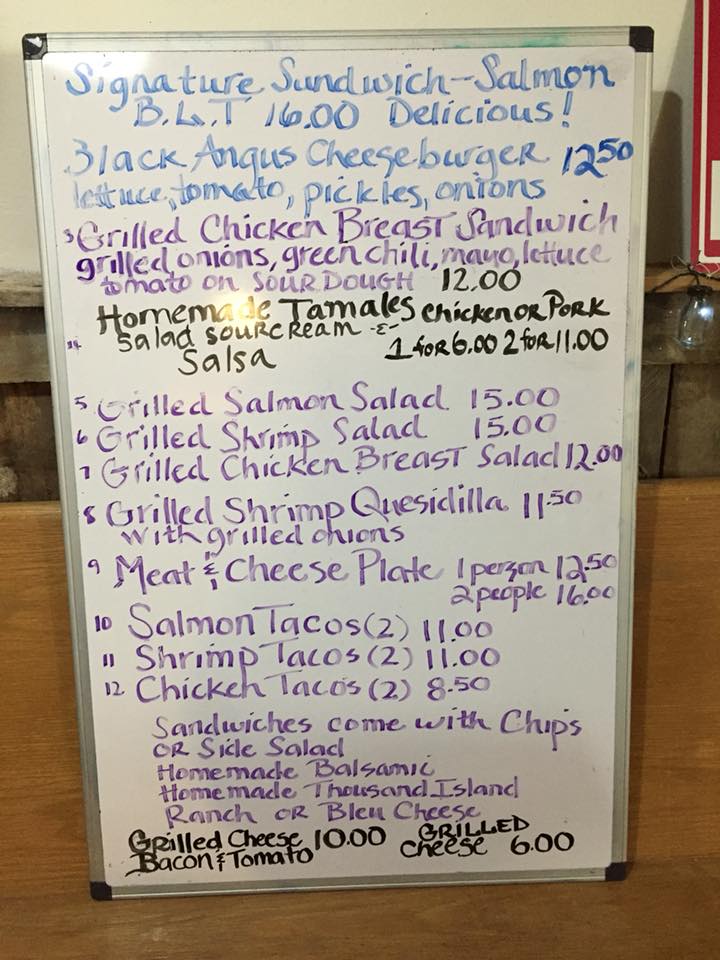 Signature Sandwich-Salmon
B.L.T 16.00 Delicious!
Black Angus Cheeseburger 12.50
lettuce, tomato, pickles, onions
3 Grilled Chicken Breast Sandwich
grilled onions, green chili, mayo, lettuce
tomato on SOUR DOUGH 12.00
Homemade Tamales chicken OR PORK
Salad sourcream -&-
Salsa
1 for 6.00 2 for 11.00
5 Grilled Salmon Salad 15.00
6 Grilled Shrimp Salad 15.00
7 Grilled Chicken Breast Salad 12.00
8 Grilled Shrimp Quesidilla 11.50
with grilled onions
9 Meat & Cheese Plate 1 person 12.50
2 people 16.00
10 Salmon Tacos (2) 11.00
11 Shrimp Tacos (2) 11.00
12 Chicken Tacos (2) 8.50
Sandwiches come with Chips
OR Side Salad
Homemade Balsamic
Homemade Thousand Island
Ranch OR Bleu Cheese
Grilled Cheese 10.00
Bacon & Tomato
GRILLED
Cheese 6.00